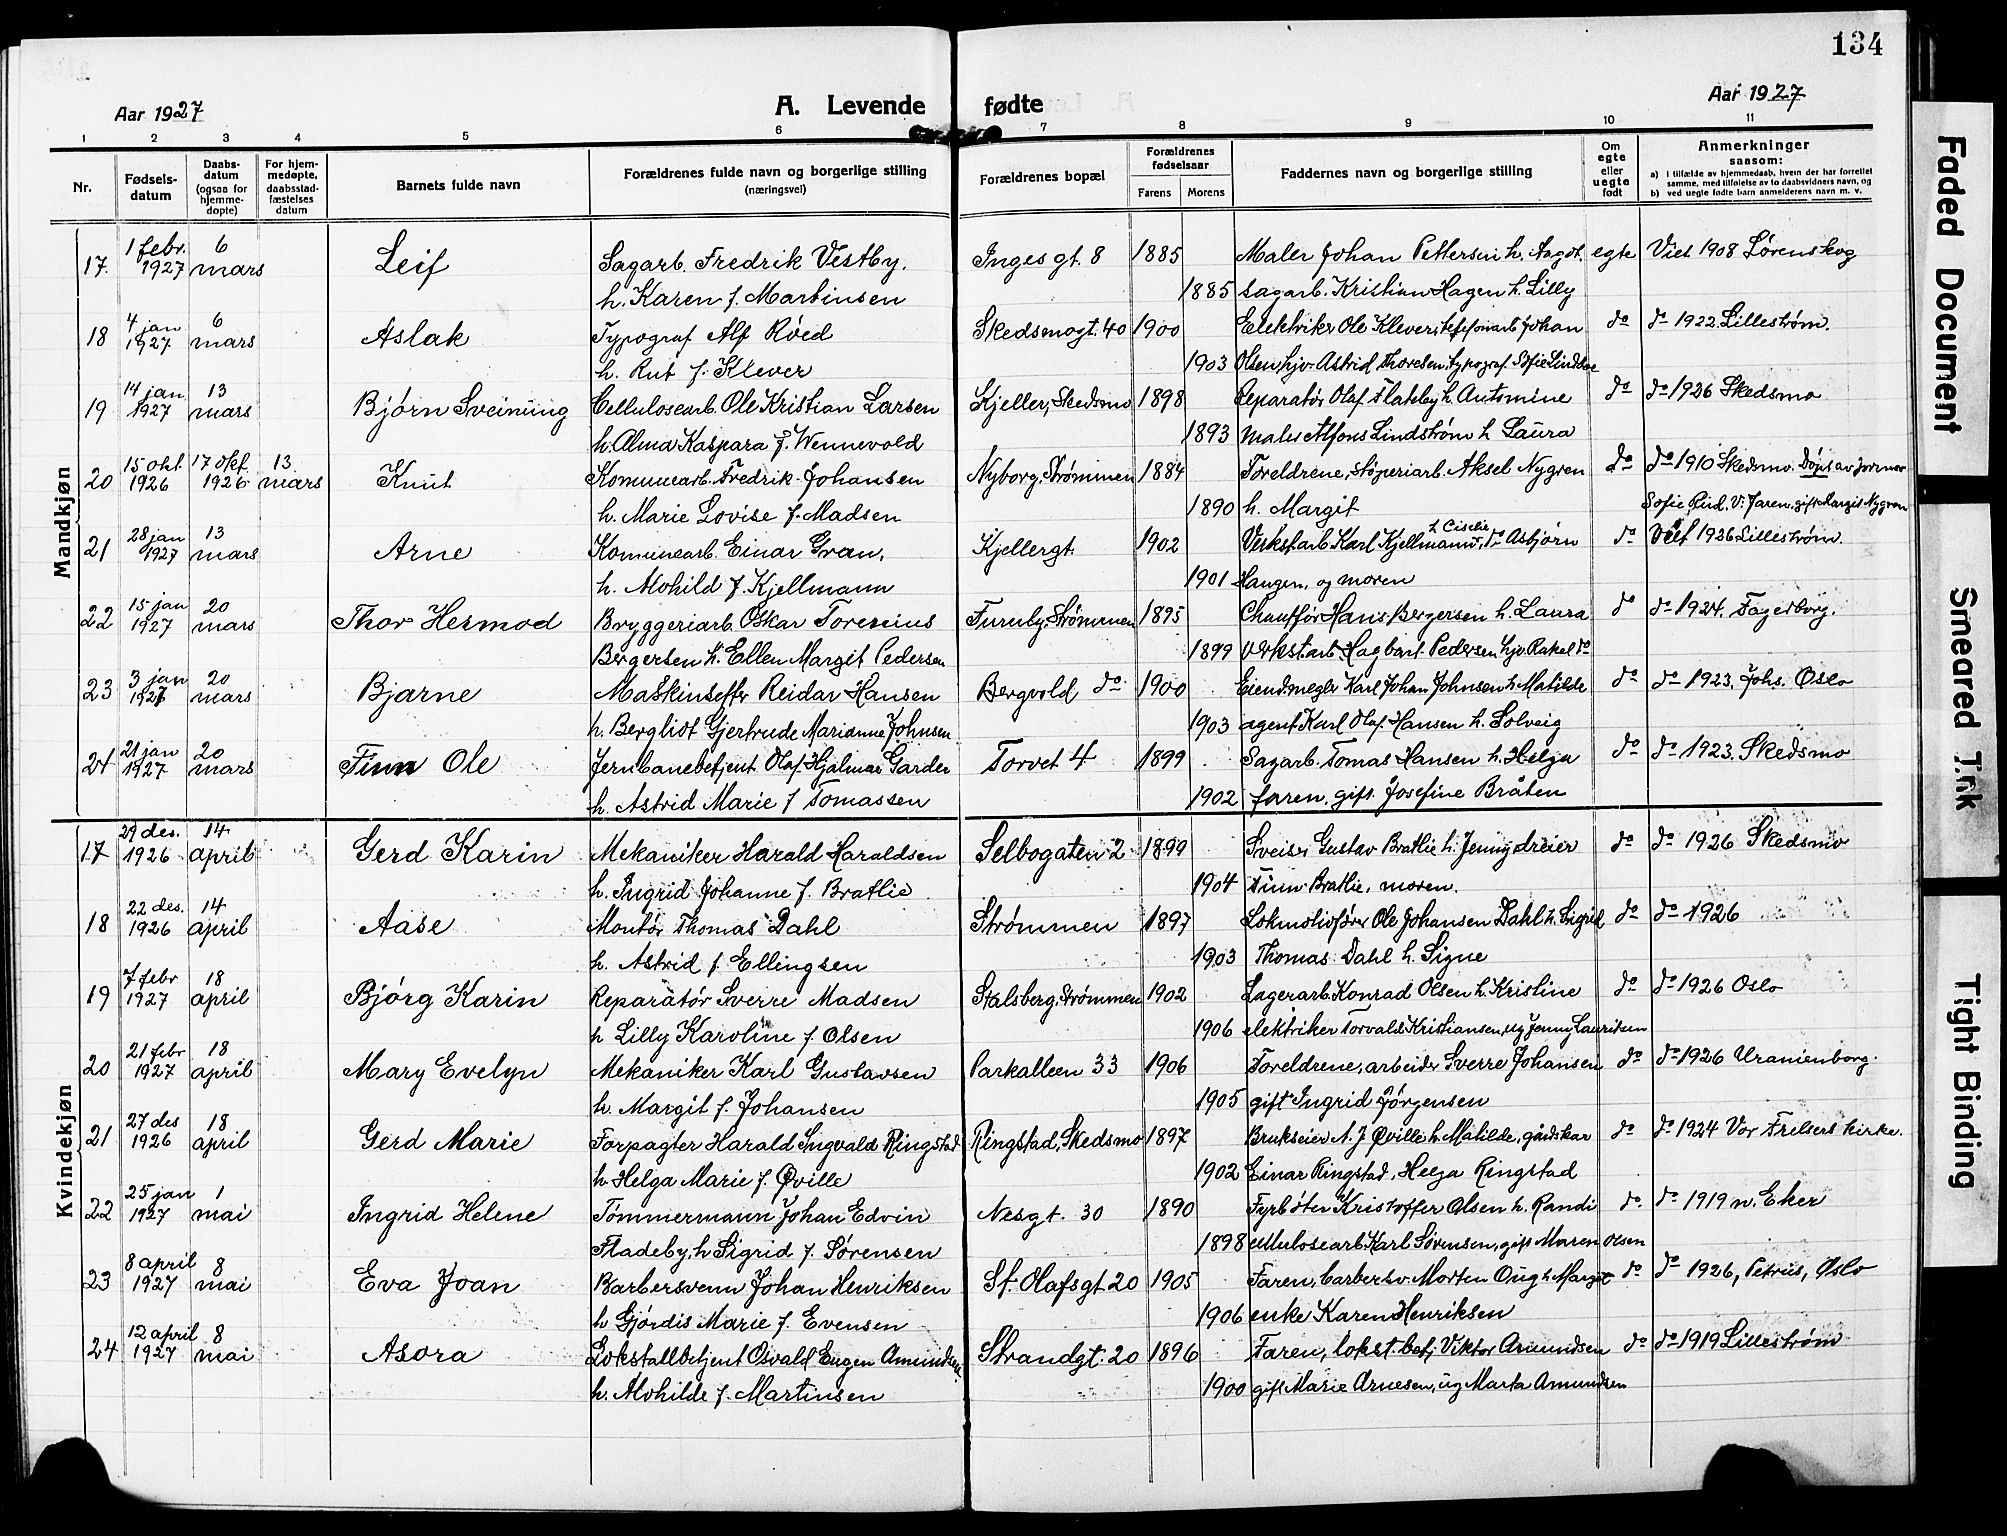 134
Aar 1927 A. Levende fødte Aar 1927
1 2 3 4 5 6 7 8 9 10 11
Nr. Fødsels-datum Daabs-datum (ogsaa for hjemme-døpte) For hjem-medøpte, daabsstad-fæstelses datum Barnets fulde navn Forældrenes fulde navn og borgerlige stilling (næringsvei) Forældrenes bopæl Forældrenes fødselsaar Farens Morens Faddernes navn og borgerlige stilling Om egte eller uegte født Anmerkninger saasom: a) I tilfælde av hjemmedaab, hvem der har forrettet samme, med tilføielse av to daabsvidners navn, og b) ved uegte fødte barn anmelderens navn m. v.
Mandkjøn
17. 1 febr. 1927 6 mars Leif Sagarb. Fredrik Vestby. Inges gt. 8 1885 Maler Johan Pettersen h. Aagot, egte Viet 1908 Lørenskog
h. Karen f. Martinsen 1885 sagarb. Kristian Hagen h. Lilly
18 4 jan 1927 6 mars Aslak Typograf Alf Røed Skedsmogt. 40 1900 Elektriker Ole Klever, telefonarb Johan do do 1922 Lillestrøm.
h. Rut f. Klever 1903 Olsen, hjv. Astrid Thoresen, typograf Sofie
19 14 jan 1927 13 mars Bjørn Sveinung Cellulosearb. Ole Kristian Larsen Kjeller, Skedsmo 1898 Reparatør Olaf Flateby h. Antomine do do 1926 Skedsmo
h. Alma Kaspara f. Wennevold 1893 maler Alfons Lindstrøm h Laura
20 15 okt. 1926 17 okt. 1926 13 mars Knut Komunearb. Fredrik Johansen Nyborg, Strømmen 1884 Foreldrene, støperiarb. Aksel Nygren do do 1910 Skedsmo. Døpt av jormor
h. Marie Lovise f. Madsen 1890 h. Margit Sofie Rud, V: Faren, gift Margit Nygren
21 28 jan 1927 13 mars Arne Komunearb. Einar Gran, Kjellergt. 1902 Verkst.arb. Karl Kjellmann h Cicelie, do Asbjørn do Viet 1926 Lillestrøm
h. Alvhild f. Kjellmann 1901 Haugen, og moren
22 15 jan 1927 20 mars Thor Hermod Bryggeriarb. Oskar Torenius Furuby, Strømmen 1895 Chauffør Hans Bergersen h. Laura do do 1924. Fagerborg.
Bergersen h. Ellen Margit Pedersen 1899 verkst.arb. Hagbart Pedersen hjv. Rakel do
23 3 jan 1927 20 mars Bjarne Maskinsetter Reidar Hansen Bergvold do 1900 Eiend.megler Karl Johan Johnsen h. Matilde do do 1923. Johs. Oslo
h. Bergliot Gjertrude Marianne Johnsen 1903 agent Karl Olaf Hansen h. Solveig
24 21 jan 1927 20 mars Finn Ole Jernbanebetjent Olaf Hjalmar Garder Torvet 4 1899 Sagarb. Tomas Hansen h. Helga do do 1923. Skedsmo
h. Astrid Marie f Tomassen 1902 faren, gift. Josefine Bråten
Kvindekjøn
17 29 des. 1926 14 april Gerd Karin Mekaniker Harald Haraldsen Selbogaten 2 1899 Sveiser Gustav Bratlie h. Jenny, dreier do do 1926 Skedsmo
h. Ingrid Johanne f. Bratlie 1904 Finn Bratlie, moren.
18 22 des. 1926 14 april Aase Montør Thomas Dahl Strømmen 1897 Lokmotivfører Ole Johansen Dahl h. Sigrid do do 1926
h. Astrid f. Ellingsen 1903 Thomas Dahl h. Signe
19 7 febr 1927 18 april Bjørg Karin Reparatør Sverre Madsen Stalsberg, Strømmen 1902 Lagerarb. Konrad Olsen h. Kristine do do 1926 Oslo
h Lilly Karoline f. Olsen 1906 elektriker Torvald Kristiansen, ug Jenny Lauritsen
20 21 febr 1927 18 april Mary Evelyn Mekaniker Karl Gustavsen Parkalleen 33 1906 Foreldrene, arbeider Sverre Johansen do do 1926 Uranienborg.
h. Margit f. Johansen 1905 gift Ingrid Jørgensen
21 27 des 1926 18 april Gerd Marie Forpagter Harald Ingvald Ringstad Ringstad, Skedsmo 1897 Brukseier A. J Øville h. Matilde, gårdskar do do 1924 Vor Frelsers kirke.
h. Helga Marie f. Øville 1902 Einar Ringstad, Helga Ringstad
22 25 jan 1927 1 mai Ingrid Helene Tømmermann Johan Edvin Nesgt. 30 1890 Fyrbøter Kristoffer Olsen h. Randi do. do 1919 n. Eker
Fladeby, h Sigrid f. Sørensen 1898 cellulosearb Karl Sørensen, gift Maren Olsen
23 8 april 1927 8 mai Eva Joan Barbersvenn Johan Henriksen St. Olafsgt. 20 1905 Faren, barbersv. Morten Oug h. Margit do do 1926, Petrus, Oslo
h Gjørdis Marie f. Evensen 1906 enke Karen Henriksen
24 12 april 1927 8 mai Asora Lokstallbetjent Osvald Eugen Amundsen Strandgt. 20 1896 Faren, lokst. betj Viktor Amundsen do do 1919 Lillestrøm
h. Alvhilde f. Martinsen 1900 gift Marie Arnesen, ug Marta Amundsen
Faded Document
Smeared Ink
Tight Binding